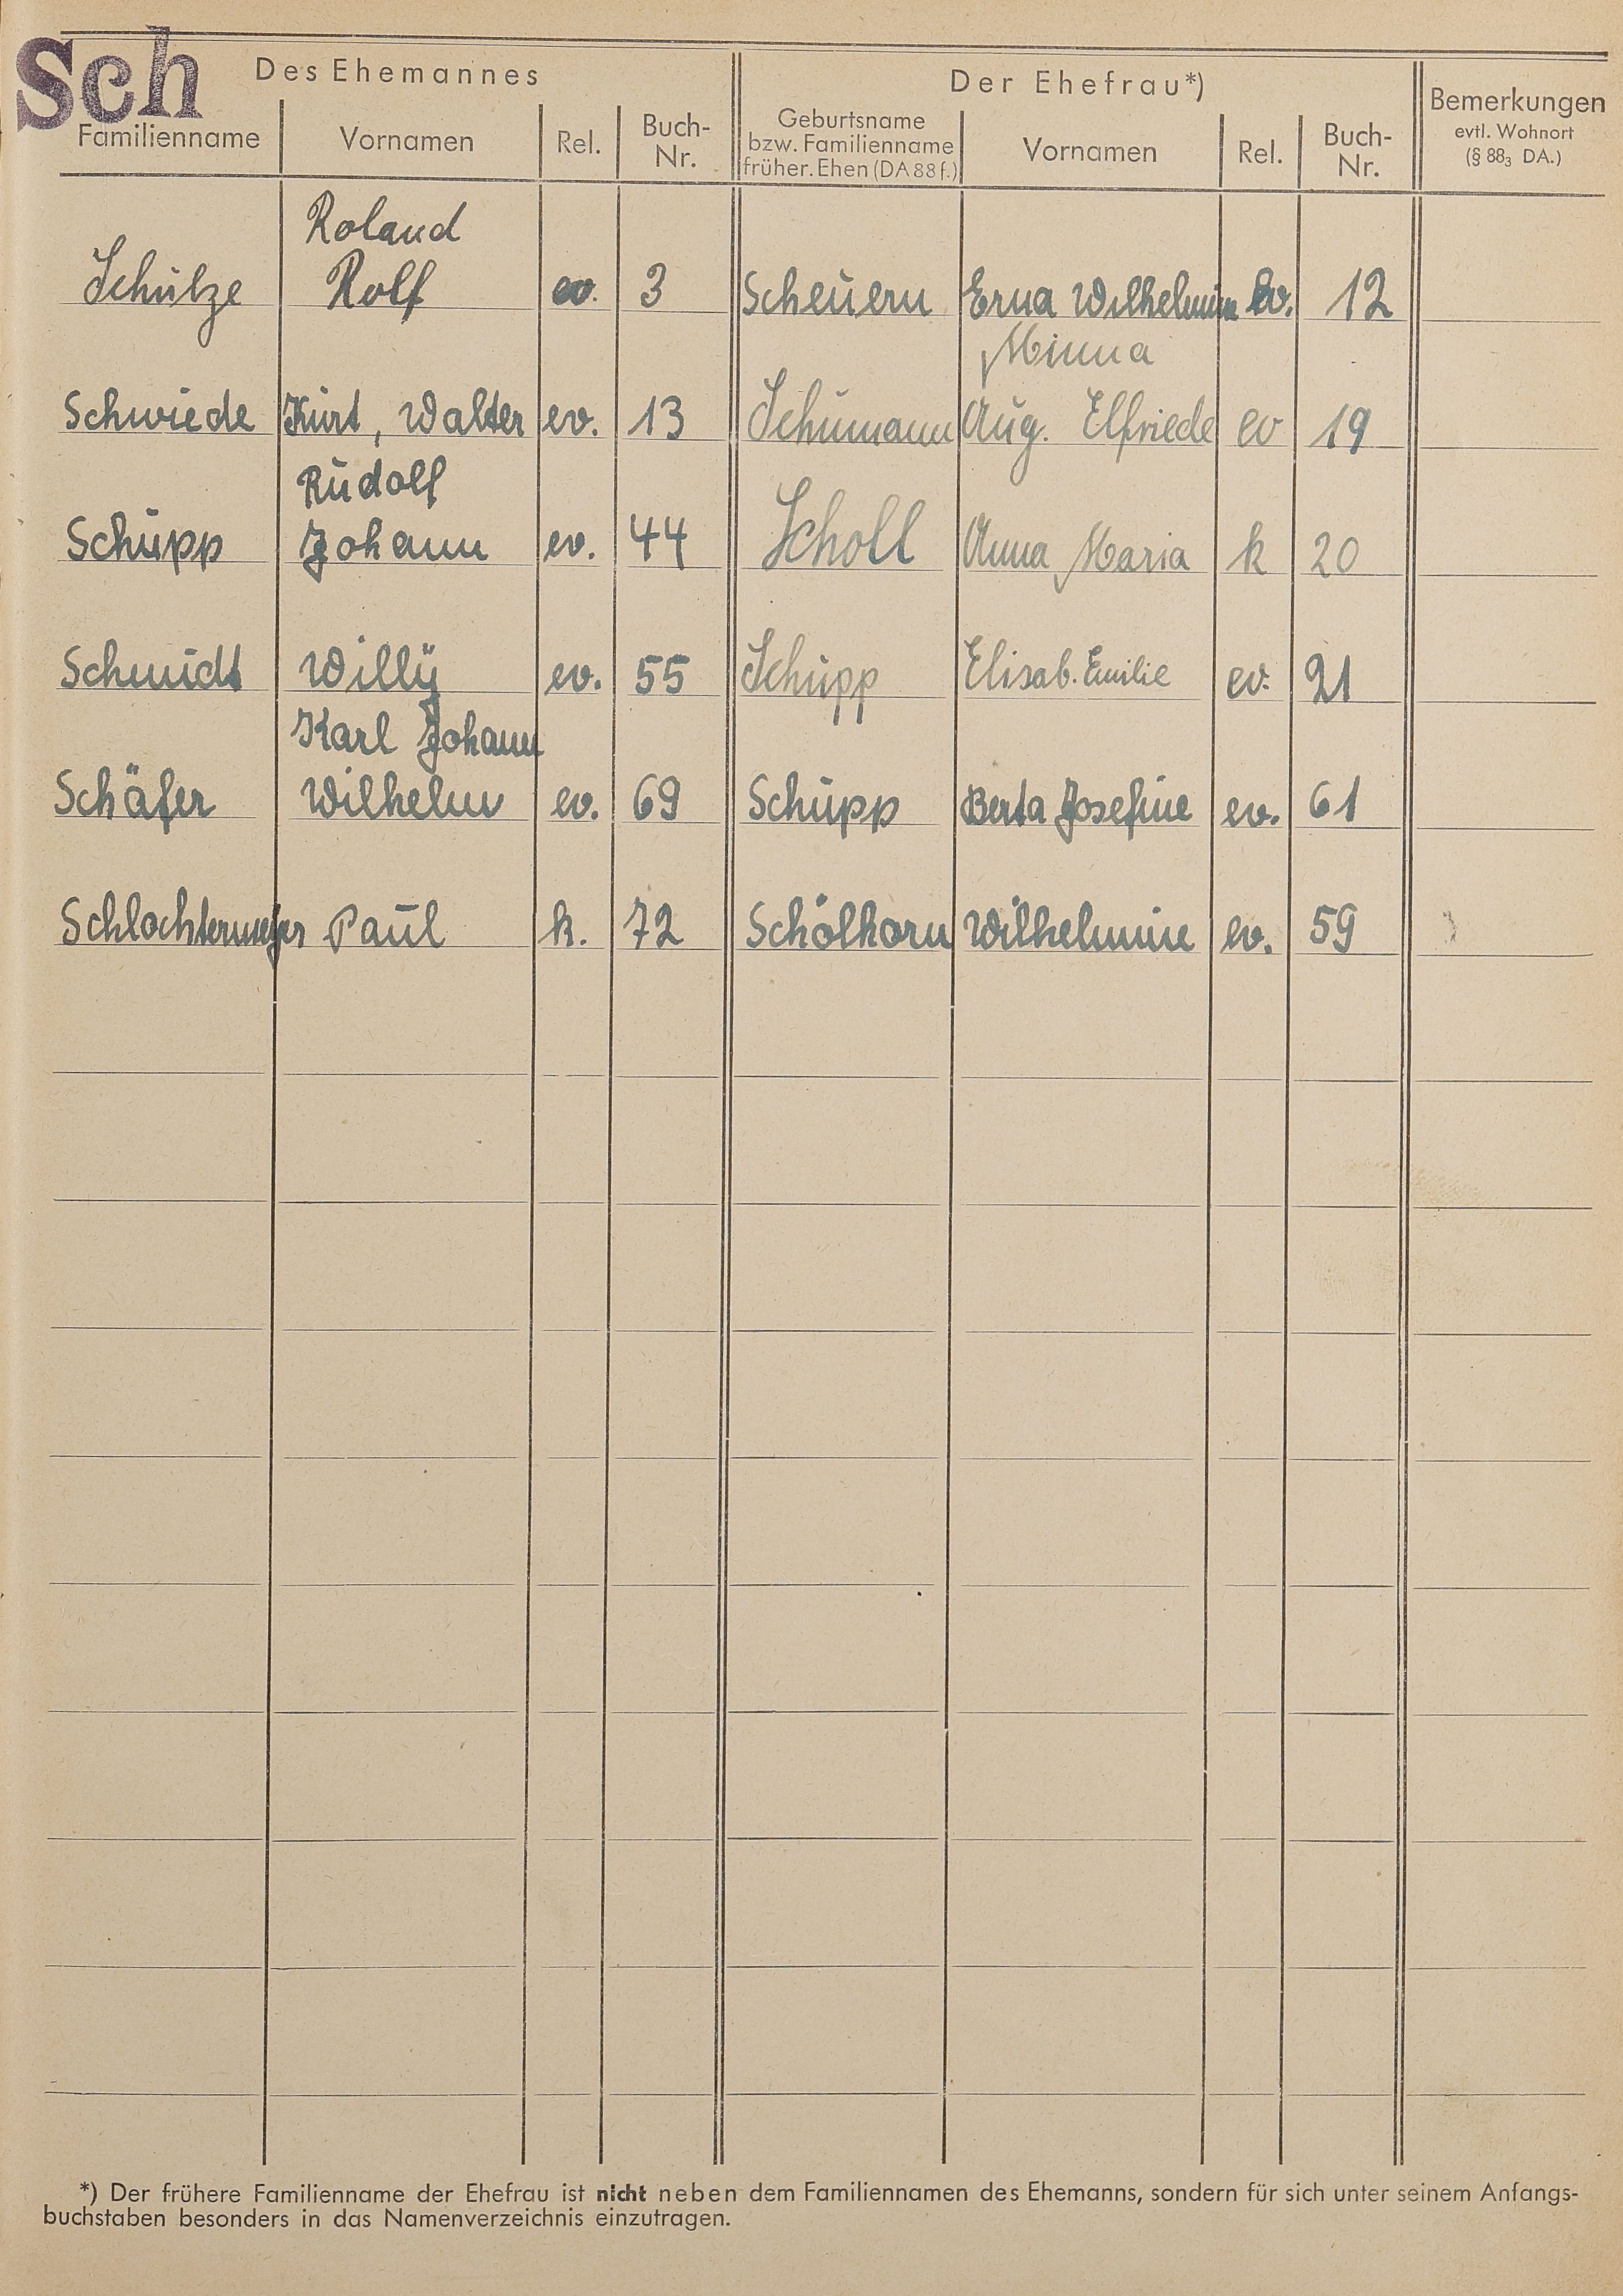 Sch
Des Ehemannes Der Ehefrau*) Bemerkungen
evtl. Wohnort
(§ 88₃ DA.)
Familienname Vornamen Rel. Buch-Nr. Geburtsname bzw. Familienname früher. Ehen (DA 88 f.) Vornamen Rel. Buch-Nr.
Roland
Schulze Rolf ev. 3 Scheuern Erna Wilhelmine ev. 12
Minna
Schwiede Kurt, Walter ev. 13 Schumann Aug. Elfriede ev 19
Rudolf
Schupp Johann ev. 44 Scholl Anna Maria k 20
Schmidt Willy ev. 55 Schupp Elisab. Emilie ev. 21
Karl Johann
Schäfer Wilhelm ev. 69 Schupp Berta Josefine ev. 61
Schlochtermeyer Paul k. 72 Schölhorn Wilhelmine ev. 59
*) Der frühere Familienname der Ehefrau ist nicht neben dem Familiennamen des Ehemanns, sondern für sich unter seinem Anfangs-
buchstaben besonders in das Namenverzeichnis einzutragen.